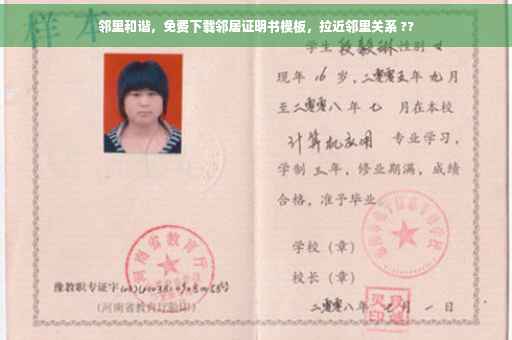 邻里和谐，免费下载邻居证明书模板，拉近邻里关系 ??
样本
学生 段毅琳 性别 女
现年 16 岁，二零零五年 九月
至二零零八年 七 月在本校
计算机应用 专业学习，
学制 三 年，修业期满，成绩
合格，准予毕业
学校（章）
校长（章）
二零零八年 月 一 日
河南省教育厅
豫教职专证字
（河南省教育厅验印）